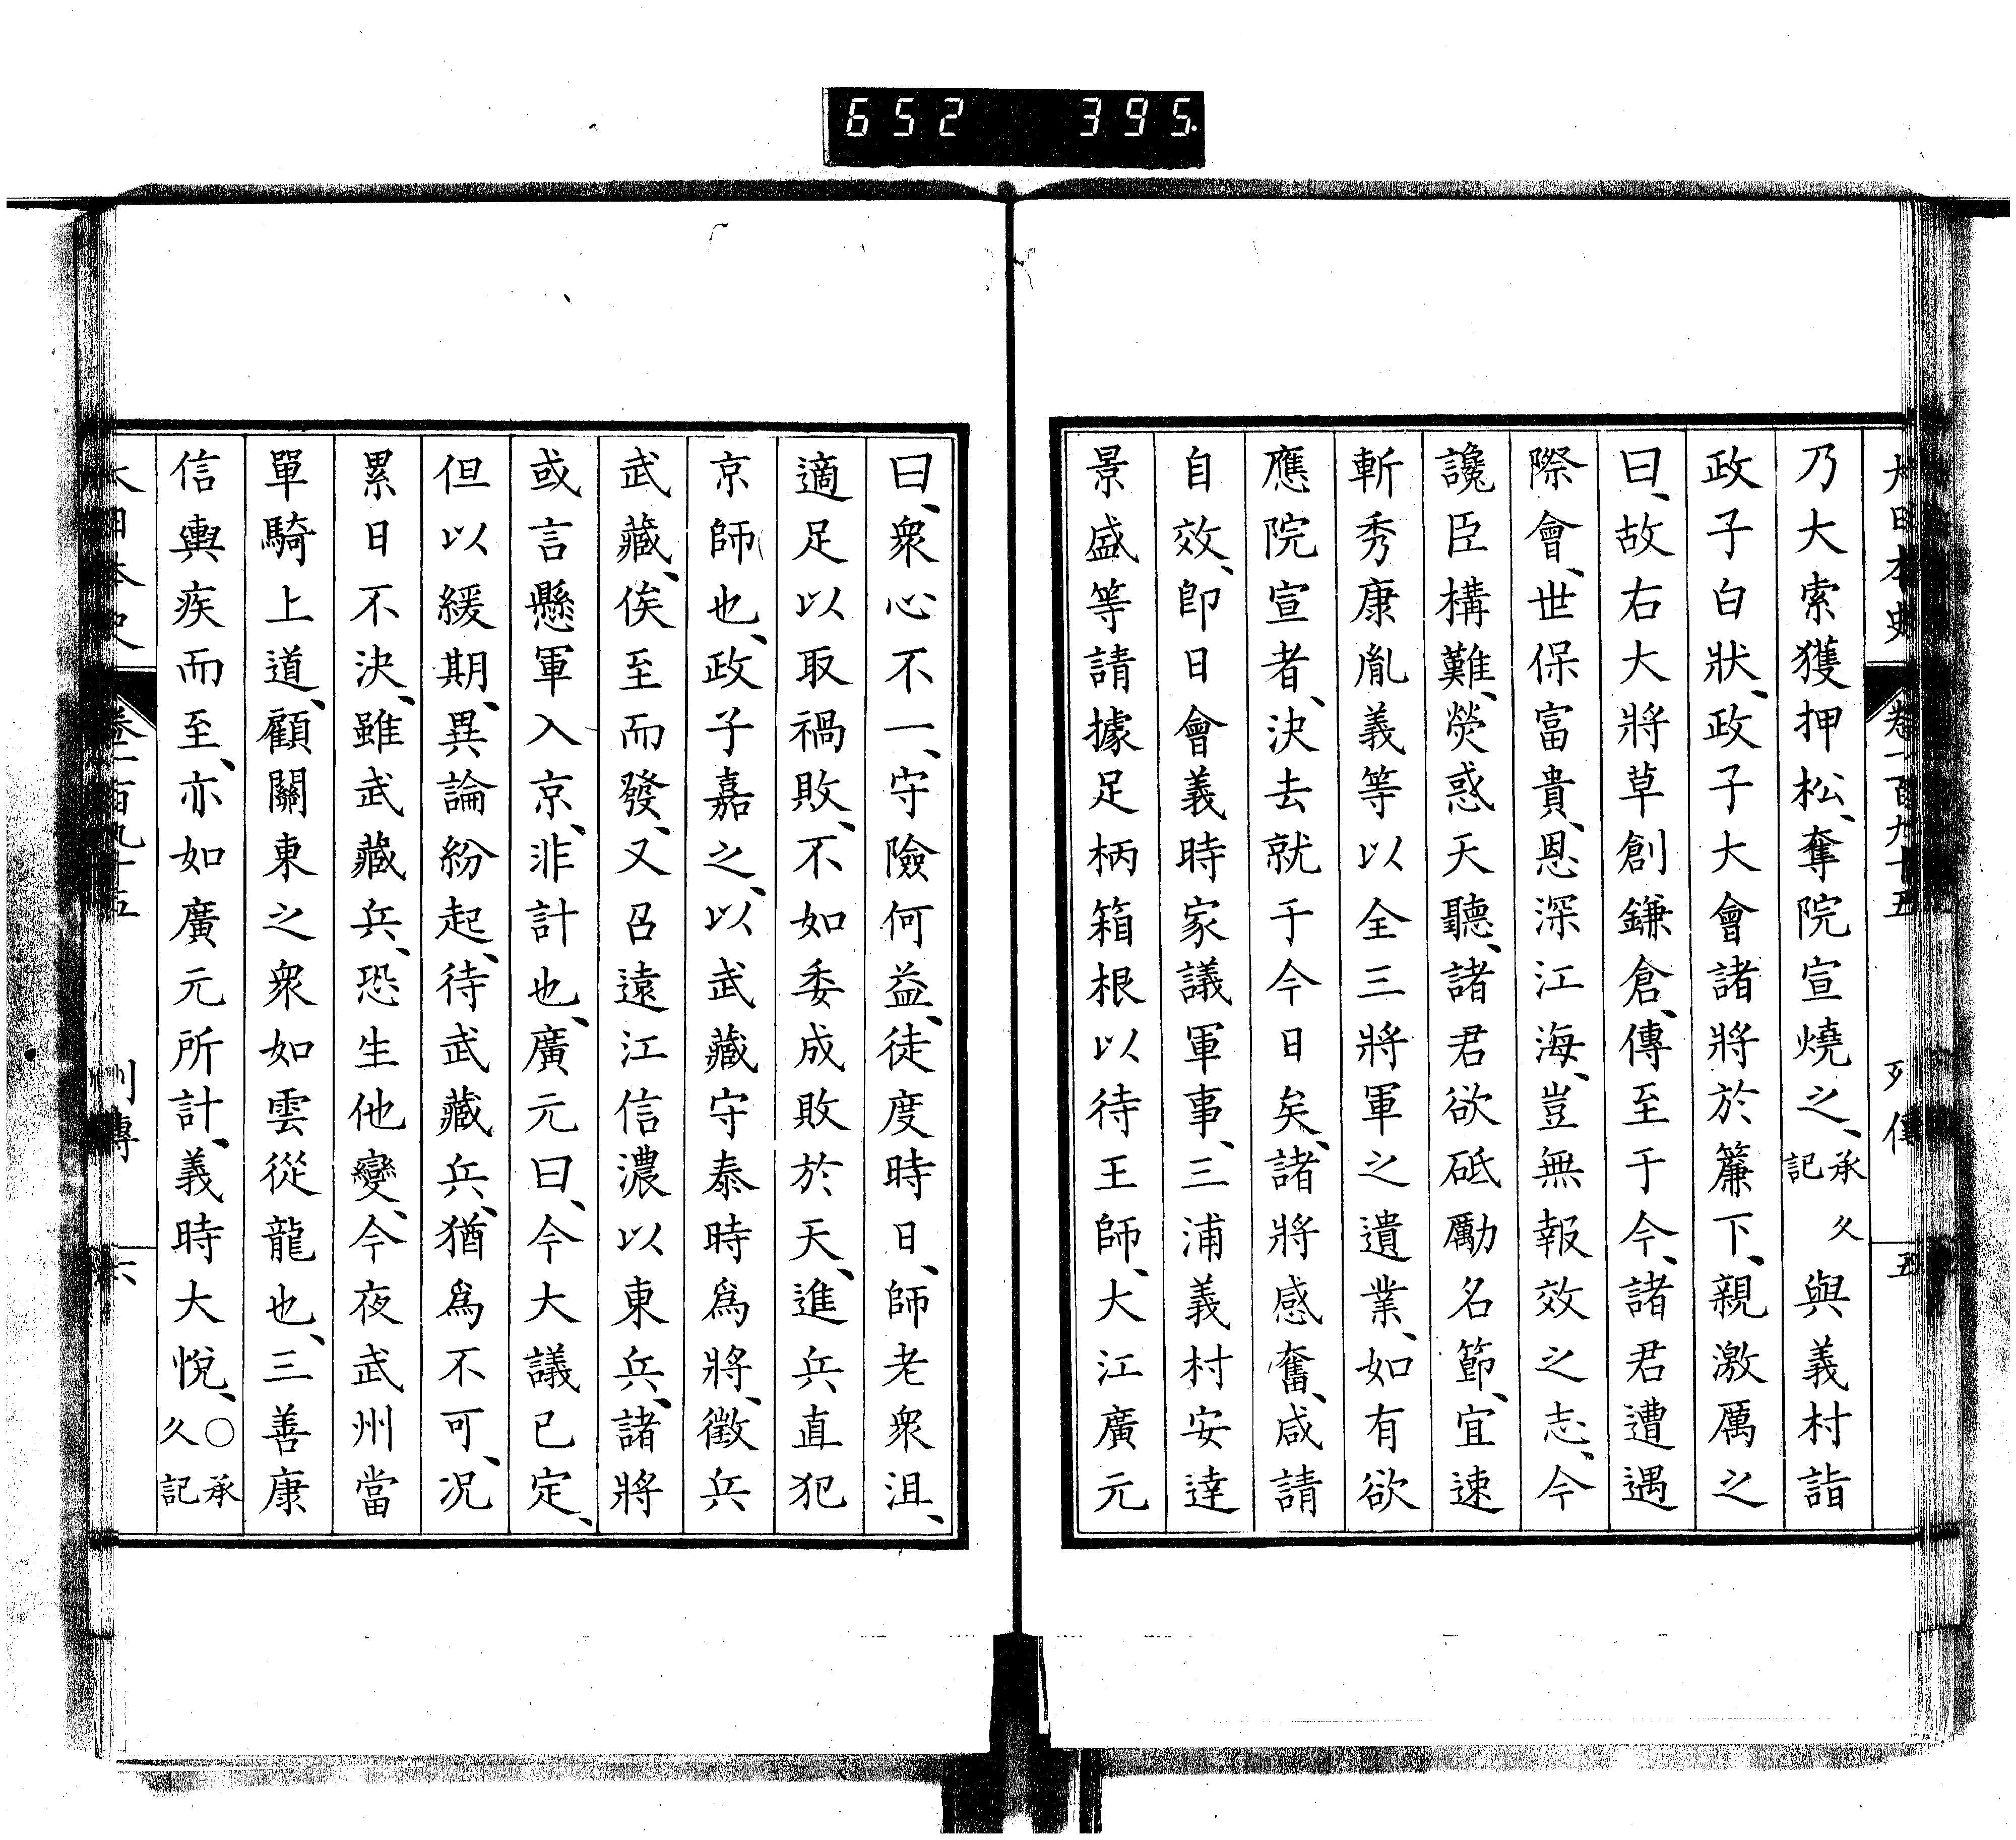 652 395.
大日本史 卷一百九十五 列傳 五
乃大索獲押松、奪院宣燒之、承久記與義村詣
政子白狀、政子大會諸將於簾下、親激厲之
曰、故右大將草創鎌倉、傳至于今、諸君遭遇
際會、世保富貴、恩深江海、豈無報效之志、今
讒臣構難、熒惑天聽、諸君欲砥勵名節、宜速
斬秀康胤義等以全三將軍之遺業、如有欲
應院宣者、決去就于今日矣、諸將感奮、咸請
自效、卽日會義時家議軍事、三浦義村安達
景盛等請據足柄箱根以待王師、大江廣元
曰、衆心不一、守險何益、徒度時日、師老衆沮、
適足以取禍敗、不如委成敗於天、進兵直犯
京師也、政子嘉之、以武藏守泰時爲將、徵兵
武藏、俟至而發、又召遠江信濃以東兵、諸將
或言懸軍入京、非計也、廣元曰、今大議已定、
但以緩期、異論紛起、待武藏兵、猶爲不可、況
累日不決、雖武藏兵、恐生他變、今夜武州當
單騎上道、顧關東之衆如雲從龍也、三善康
信輿疾而至、亦如廣元所計、義時大悅、○承久記
大日本史 卷一百九十五 列傳 六